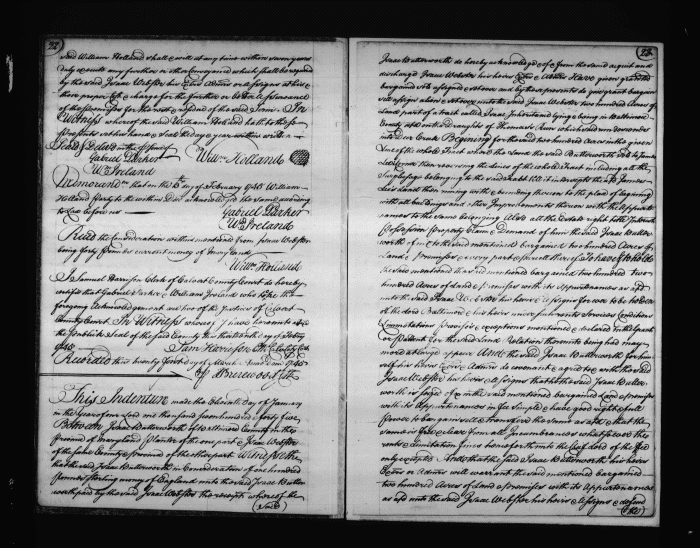 22
Said William Holland shall & will at any time within seven years
duly execute any further or other Conveyance which shall be required
by the said Isaac Webster his Exrs Admrs or Assigns at his &
there proper Cost & Charge for the further or better Assurance
of the premises for the rest & residue of the said Term. In
Witness whereof the said William Holland hath to these
presents set his hand & Seal the day & year within written
Seal'd & Deliv'd in the presence of
Gabriel Parker Willm Holland
Wm Ireland
Memorandum that on the day of February 1745 William
Holland Party to the within Deed acknowledged the same according
to Law before us
Gabriel Parker
Wm Ireland
Rec'd the Consideration within mentioned from Isaac Webster
being forty pounds current money of Maryland
Willm Holland
I Samuel Harrison Clerk of Calvert County Court do hereby
certifie that Gabriel Parker & William Ireland who took the
foregoing Acknowledgement are two of the Justices of Calvert
County Court In Witness whereof I have hereunto set
the Publick Seal of the said County this day of Febry
1745 Sam Harrison Clk Calvert Cot
Recorded this twenty first day of March Anno Dom 1745
This Indenture made the Eleventh day of January
in the year of our Lord one thousand seven hundred & forty five
Between Isaac Butterworth of Baltimore County in the
Province of Maryland Planter of the one part & Isaac Webster
of the same County & Province of the other part Witnesseth
that the said Isaac Butterworth in Consideration of one hundred
pounds Sterling money of England unto the said Isaac Butter
worth paid by the said Isaac Webster the receipt whereof the
(said)
23
Isaac Butterworth do hereby acknowledge & from the same acquit and
discharge Isaac Webster his heirs Exrs & Admrs Have given granted
bargained sold assigned & set over and by these presents do give grant bargain
sell assign & set over unto the said Isaac Webster two hundred Acres of
Land part of a tract called Isaacs Inheritance lying & being in Baltimore
County at the branches of Thomas's Run which said run descends
into Deer Creek Begining for the said two hundred Acres in the given
Line of the whole Tract where the same the said Butterworth sold to James
Lee's Land & then running the lines of the whole Tract including all the
Surplusage belonging to the said tract till it intersects the said James
Lee's Land then runing with & bounding thereon to the place of begining
with all buildings and other Improvements thereon with the Appurte
nances to the same belonging Also all the Estate right title Interest
Possession property Claim & demand of him the said Isaac Butter
worth of in & to the said mentioned bargained two hundred Acres of
Land & premisses & every part & parcell thereof To have & to hold
the said mentioned bargained two hundred
hundred Acres of Land & premisses with its appurtenances as afd
unto the said Isaac Webster his heirs & assigns for ever to be holden
of the Lord Baltimore & his heirs under such rents Services Conditions
Limitations provisoes & exceptions mentioned & declared in the Grant
or Patent for the said Land Relation thereunto being had may
more at large appear And the said Isaac Butterworth for him
self his heirs Exrs & Admrs do covenant & agree to & with the said
Isaac Webster his heirs & assigns that he the said Isaac Butter
worth is seized of & in the said mentioned bargained Land & premisses
with its Appurtenances in fee Simple & have good right & full
Power to bargain sell & transferr the same as afd & that the
same is free & clear from all Incumbrances whatsoever the
rents & Limitation fines henceforth unto the Chief Lord of the Fee
only excepted And that the said Isaac Butterworth his heirs
Exrs or Admrs will warrant the said mentioned bargained
two hundred Acres of Land & premisses with its Appurtenances
as afd unto the said Isaac Webster his heirs & assigns & defend
(the)